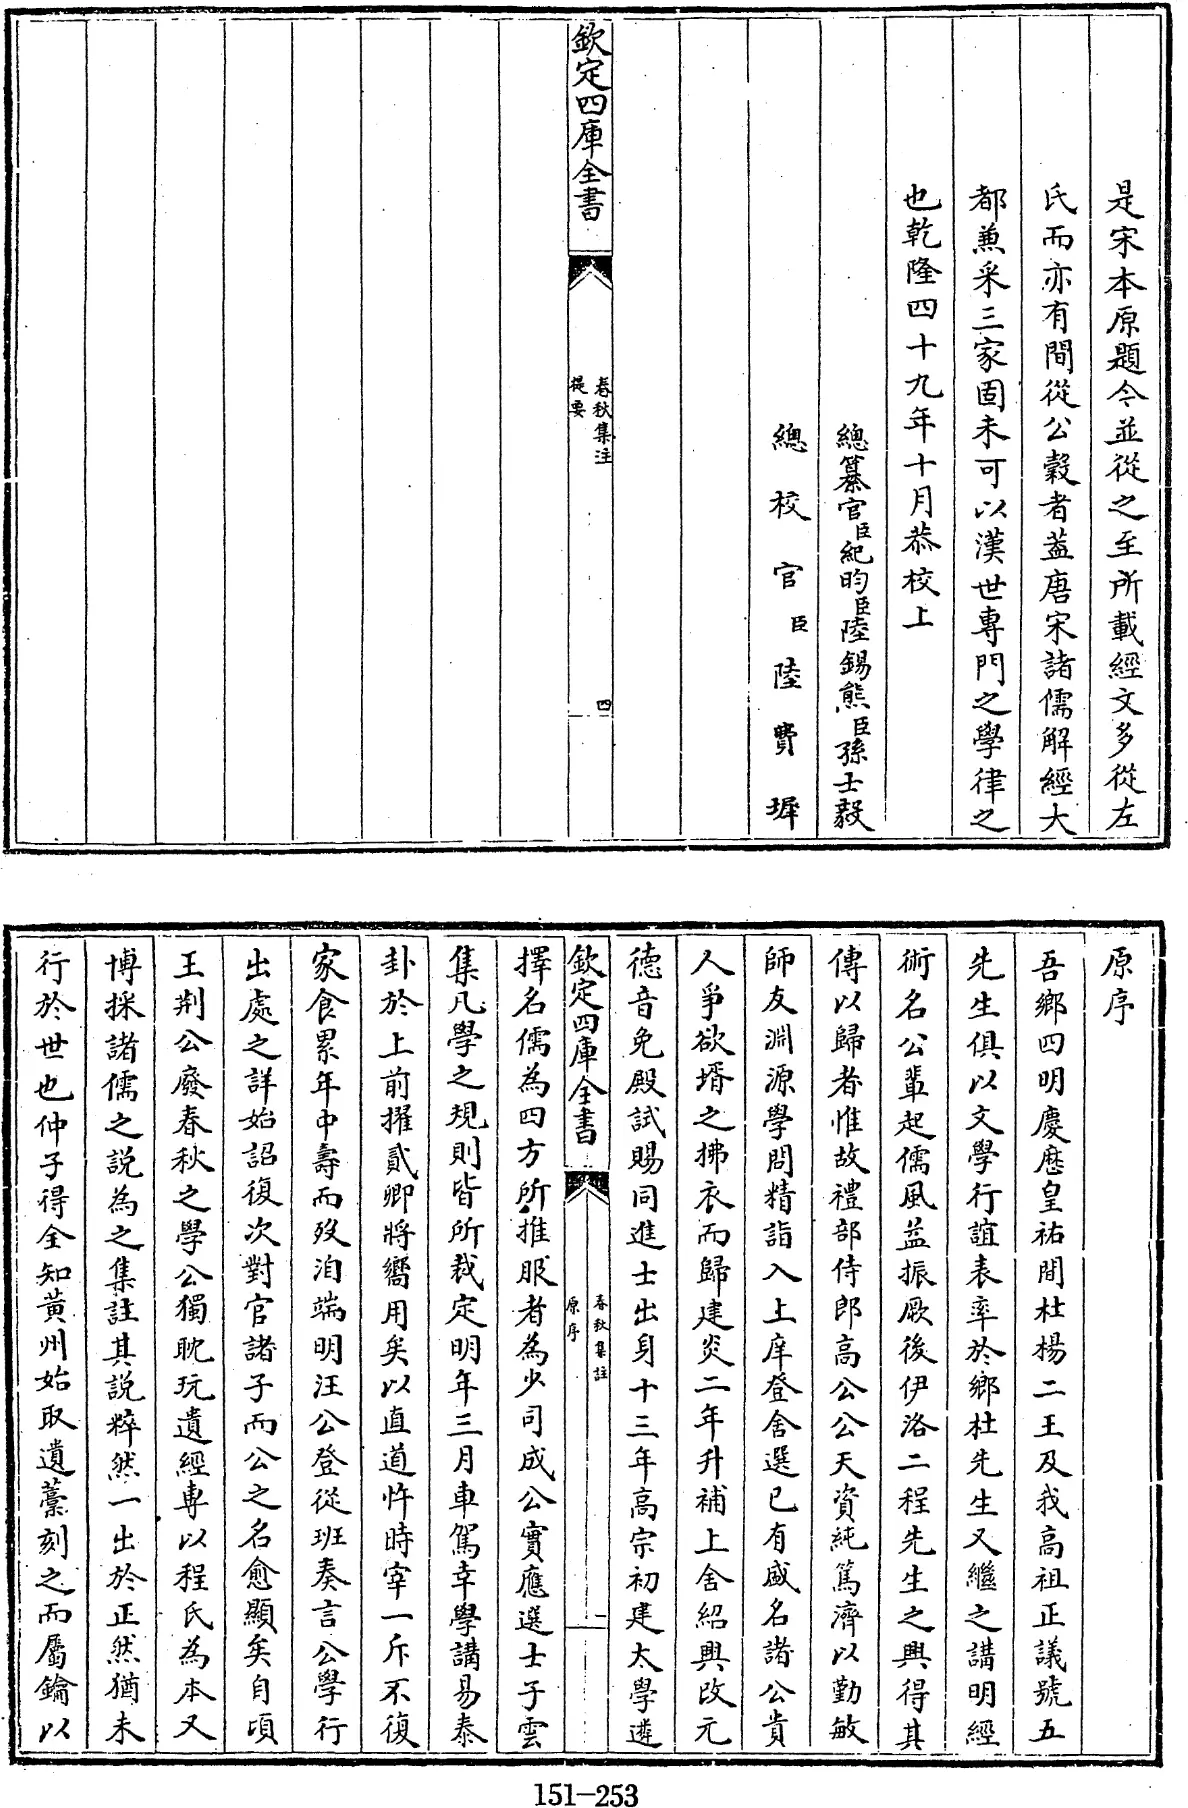 是宋本原題今並從之至所載經文多從左
氏而亦有間從公穀者蓋唐宋諸儒解經大
都兼采三家固未可以漢世專門之學律之
也乾隆四十九年十月恭校上
總纂官臣紀昀臣陸錫熊臣孫士毅
總校官臣陸費墀
欽定四庫全書
春秋集注
提要
四
原序
吾鄉四明慶厯皇祐間杜楊二王及我高祖正議號五
先生俱以文學行誼表率於鄉杜先生又繼之講明經
術名公輩起儒風益振厥後伊洛二程先生之興得其
傳以歸者惟故禮部侍郎高公公天資純篤濟以勤敏
師友淵源學問精詣入上庠登舍選已有盛名諸公貴
人爭欲壻之拂衣而歸建炎二年升補上舍紹興改元
德音免殿試賜同進士出身十三年高宗初建太學遴
欽定四庫全書
春秋集註
原序
一
擇名儒為四方所推服者為少司成公實應選士子雲
集凡學之規則皆所裁定明年三月車駕幸學講易泰
卦於上前擢貳卿將嚮用矣以直道忤時宰一斥不復
家食累年中壽而歿洎端明汪公登從班奏言公學行
出處之詳始詔復次對官諸子而公之名愈顯矣自頃
王荆公廢春秋之學公獨耽玩遺經専以程氏為本又
博採諸儒之說為之集註其說粹然一出於正然猶未
行於世也仲子得全知黃州始取遺藁刻之而屬鑰以
151-253